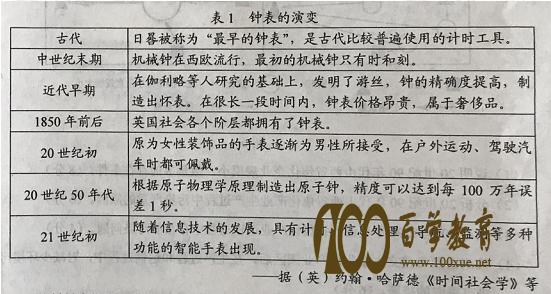 表1 钟表的演变
古代
日晷被称为“最早的钟表”，是古代比较普遍使用的计时工具。
中世纪末期
机械钟在西欧流行，最初的机械钟只有时和刻。
近代早期
在伽利略等人研究的基础上，发明了游丝，钟的精确度提高，制
造出怀表。在很长一段时间内，钟表价格昂贵，属于奢侈品。
1850年前后
英国社会各个阶层都拥有了钟表。
20世纪初
原为女性装饰品的手表逐渐为男性所接受，在户外运动、驾驶汽
车时都可佩戴。
20世纪50年代
根据原子物理学原理制造出原子钟，精度可以达到每100万年误
差1秒。
21世纪初
随着信息技术的发展，具有计 信息处理 导航 监测等多种
功能的智能手表出现。
100百学教育
www.100xue.net
——据（英）约翰·哈萨德《时间社会学》等